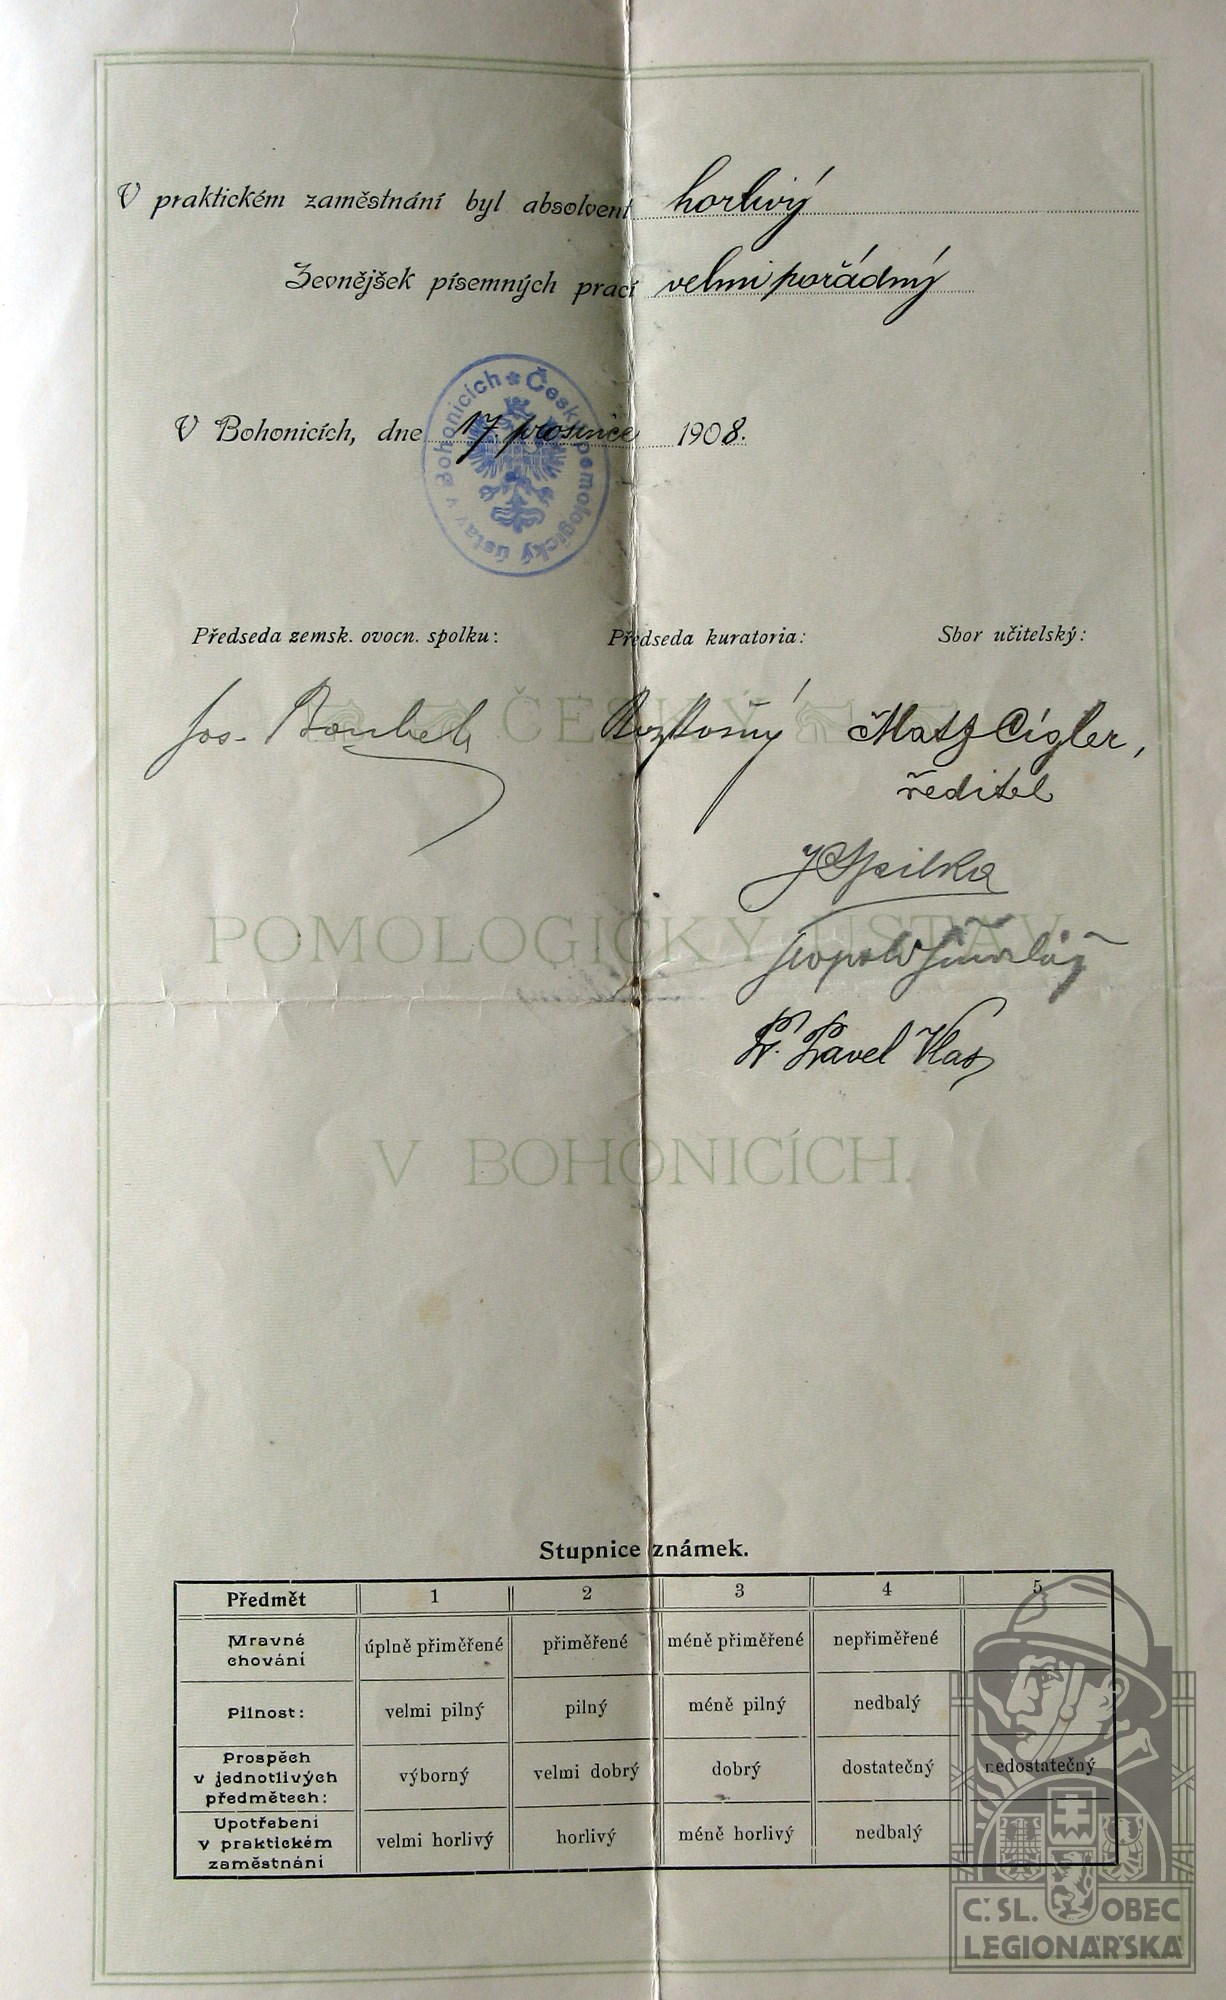 V praktickém zaměstnání byl absolvent horlivý
Zevnějšek písemných prací velmi pořádný
V Bohonicích, dne 17. prosince 1908.
Český pomologický ústav v Bohonicích
Předseda zemsk. ovocn. spolku: Předseda kuratoria: Sbor učitelský:
Jos. Rozkošný Matěj Cigler,
ředitel
J Spilka
Leopold
P. Pavel Vlas
ČESKÝ
POMOLOGICKÝ ÚSTAV
V BOHONICÍCH.
Stupnice známek.
Předmět 1 2 3 4 5
Mravné chování úplně přiměřené přiměřené méně přiměřené nepřiměřené
Pilnost: velmi pilný pilný méně pilný nedbalý
Prospěch v jednotlivých předmětech: výborný velmi dobrý dobrý dostatečný nedostatečný
Upotřebení v praktickém zaměstnání velmi horlivý horlivý méně horlivý nedbalý
Č. SL. OBEC
LEGIONÁŘSKÁ